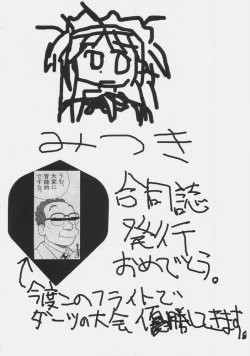 みつき
うむ。
大変に
官能的
ですな。
合同誌
発行
おめでとう。
今度このフライトで
ダーツの大会優勝してきます。